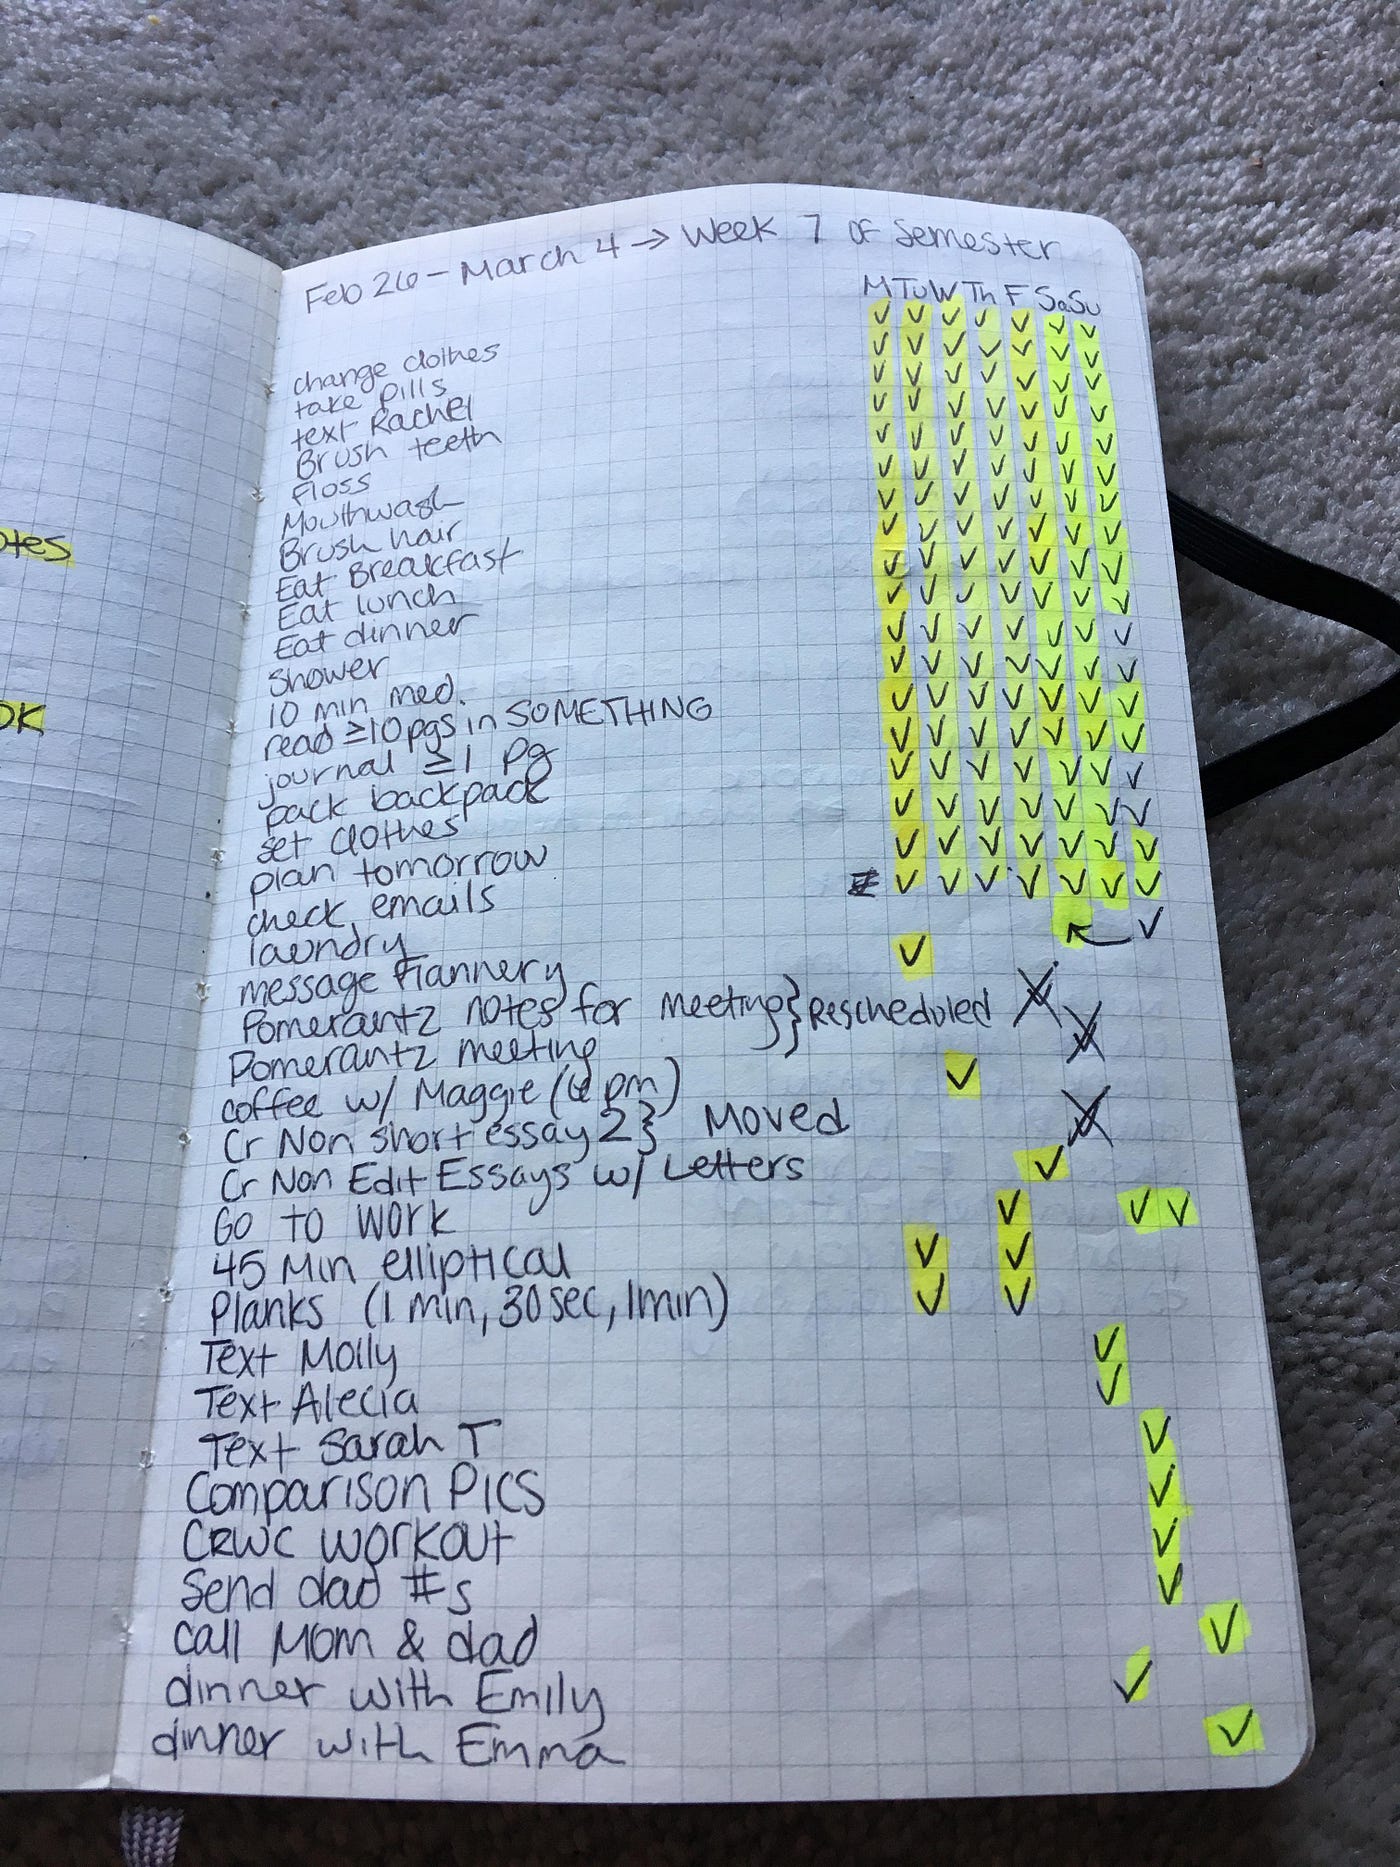 otes
OK
Feb 26 - March 4 → Week 7 of Semester
M Tu W Th F Sa Su
change clothes
take pills
text Rachel
Brush teeth
Floss
Mouthwash
Brush hair
Eat Breakfast
Eat lunch
Eat dinner
shower
10 min med.
read ≥10 pgs in SOMETHING
journal ≥1 pg
pack backpack
set clothes
plan tomorrow
check emails
laundry
message Flannery
Pomerantz notes for meeting } Rescheduled
Pomerantz meeting
coffee w/ Maggie (4 pm)
Cr Non short essay 2 } Moved
Cr Non Edit Essays w/ Letters
Go to work
45 Min elliptical
Planks (1 min, 30 sec, 1min)
Text Molly
Text Alecia
Text Sarah T
Comparison Pics
CRWC workout
Send dad #s
call Mom & dad
dinner with Emily
dinner with Emma